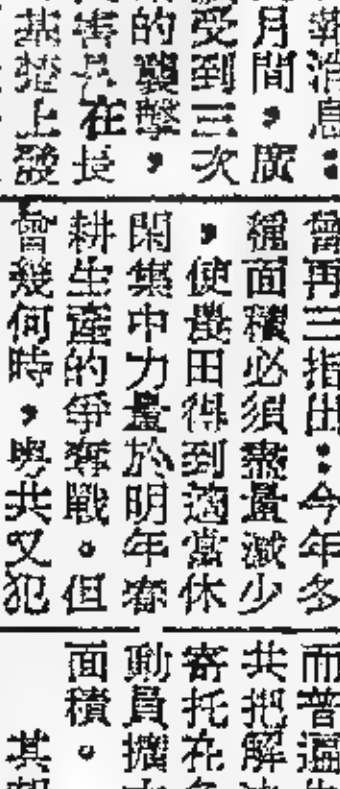 消息：
月間，廣
受到三次
的襲擊，
害在長
基礎上發
曾再三指出：今年多
種面積必須盡量減少
，使農田得到適當休
閑集中力量於明年春
耕生產的爭奪戰。但
曾幾何時，粵共又犯
而普遍
共把解
寄托在
動員擴
面積。
其